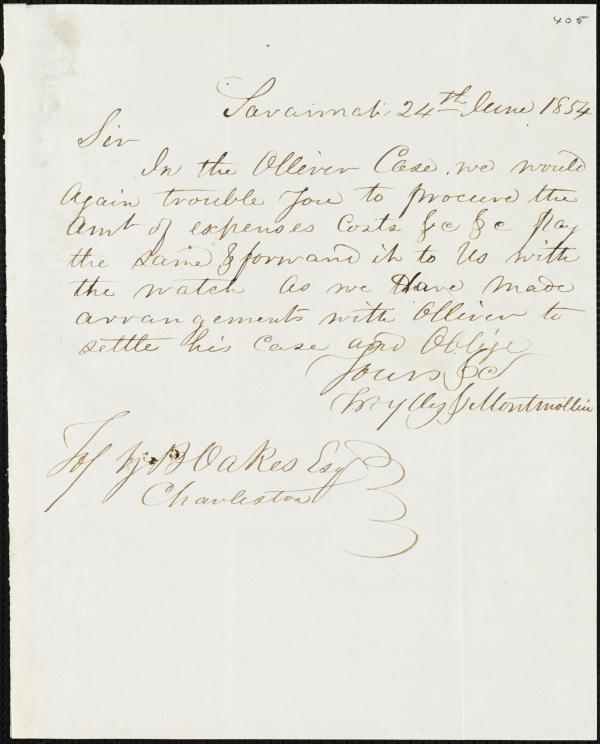 405
Savannah 24th June 1854
Sir
In the Olliver Case we would
again trouble you to procure the
Amt of expenses Costs &c &c pay
the same & forward it to us with
the watch as we Have made
arrangements with Olliver to
settle his case and Oblige
Yours &c
Wylly & Montmollin
To Z B Oakes Esq
Charleston